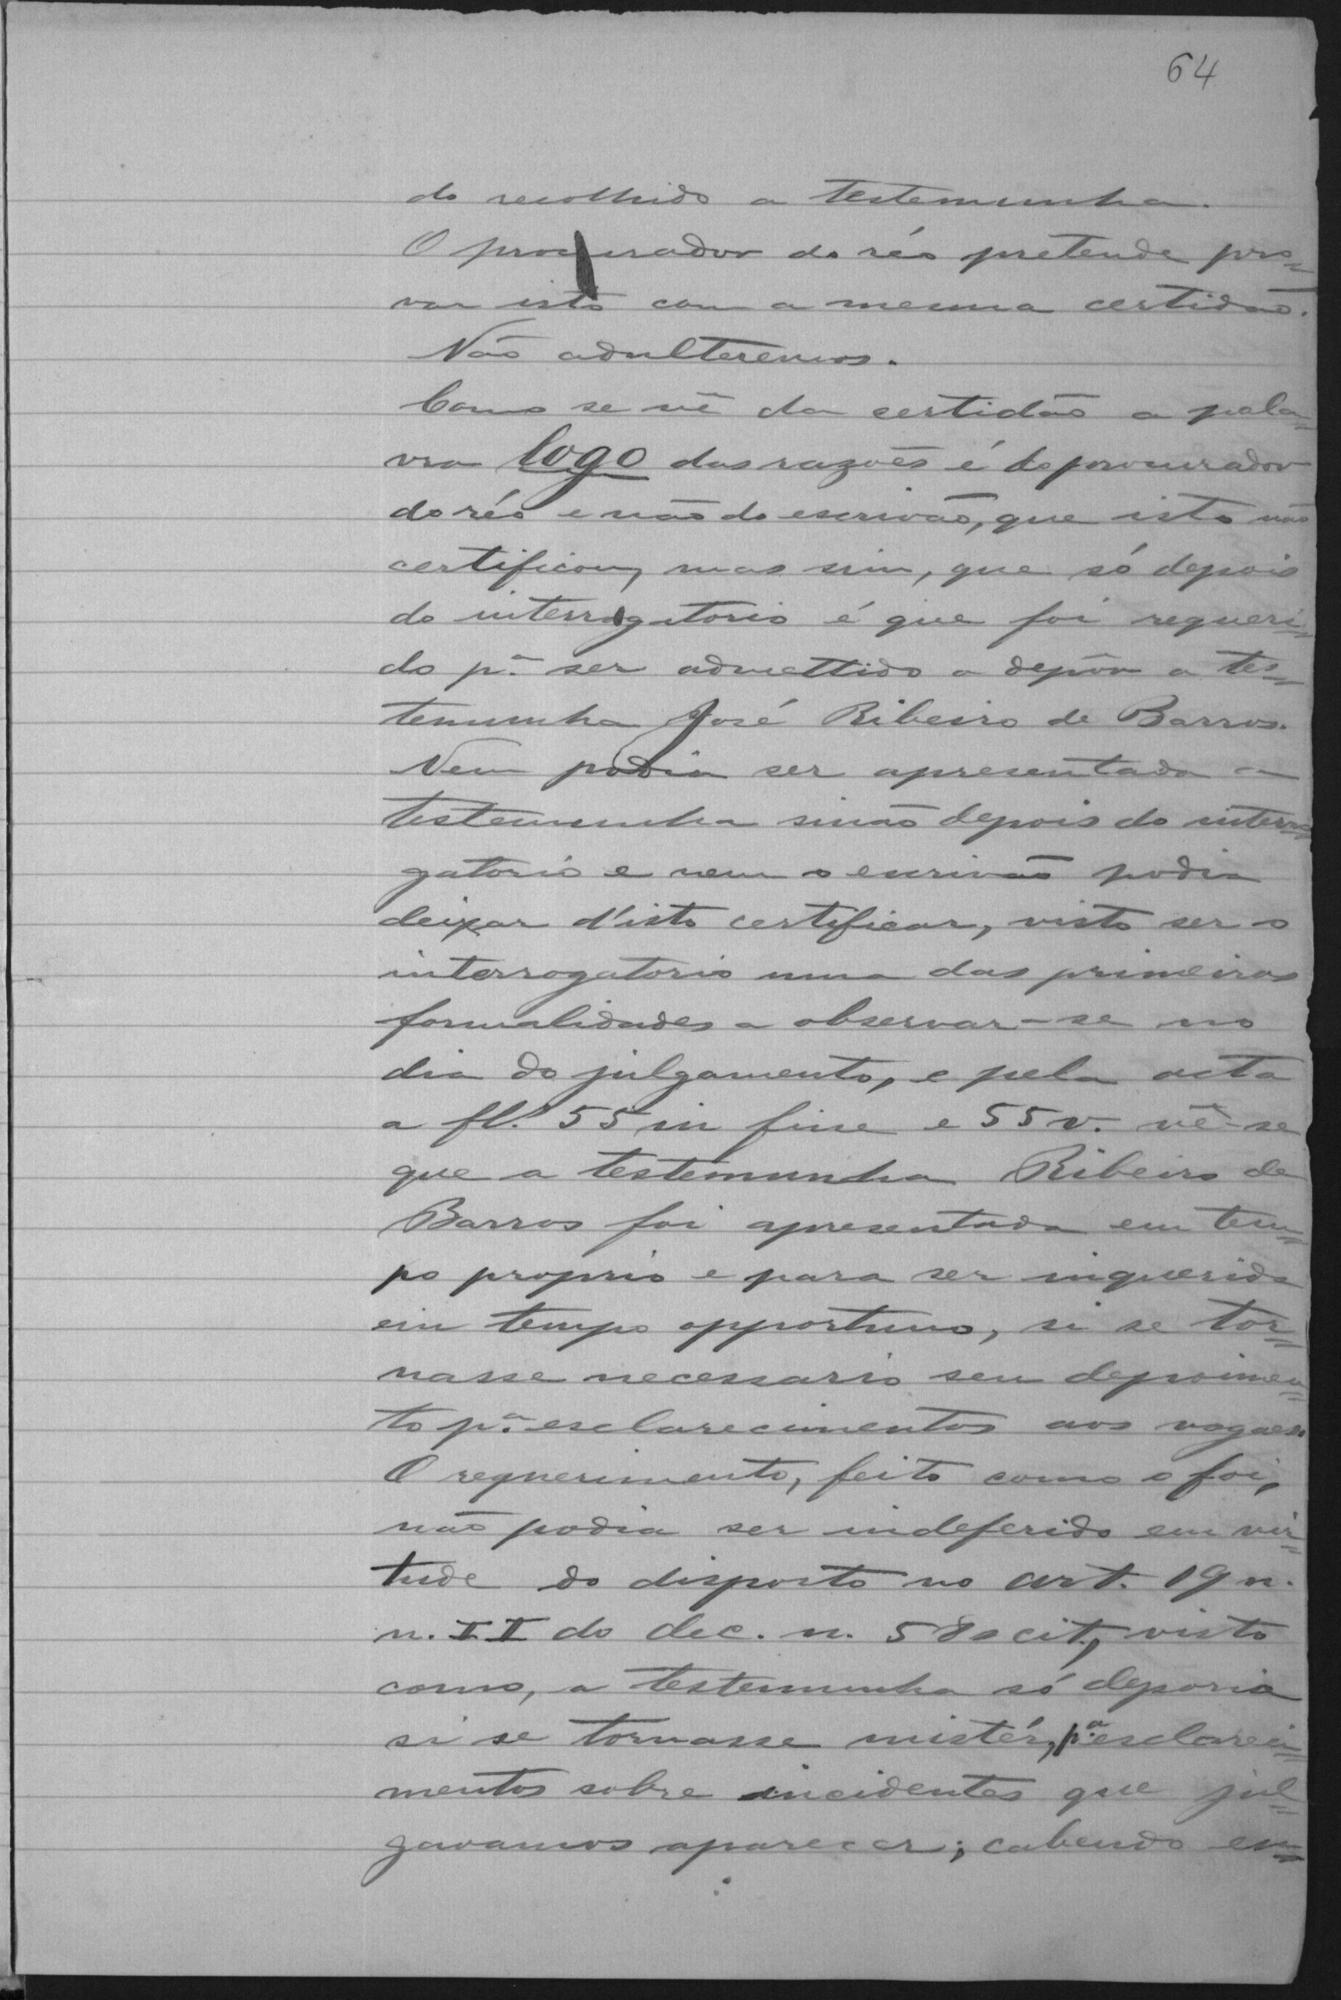 64
do recolhido a testemunha.
O procurador do réo pretende pro=
var isto com a mesma certidão.
Não adulteremos.
Como se vê da certidão a pala=
vra logo das razões é do procurador
do réo e não do escrivão, que isto não
certificou, mas sim, que só depois
do interrogatorio é que foi requeri=
do pª ser admettido a depôr a tes=
temunha José Ribeiro de Barros.
Nem podia ser apresentada a
testemunha sinão depois do interro
gatorio e nem o escrivão podia
deixar d'isto certificar, visto ser o
interrogatorio uma das primeiras
formalidades a observar-se no
dia do julgamento, e pela acta
a fl. 55 in fine e 55 v. vê-se
que a testemunha Ribeiro de
Barros foi apresentada em tem=
po proprio e para ser inquerida
em tempo opportuno, si se tor=
nasse necessario seu depoimen=
to pª esclarecimentos aos vogaes.
O requerimento, feito como o foi,
não podia ser indeferido em vir=
tude do disposto no art. 19 n.
n. II do dec. n. 580 cit, visto
como, a testemunha só deporia
si se tornasse mistér, pª esclareci=
mentos sobre incidentes que jul=
gavamos aparecer; cabendo en=